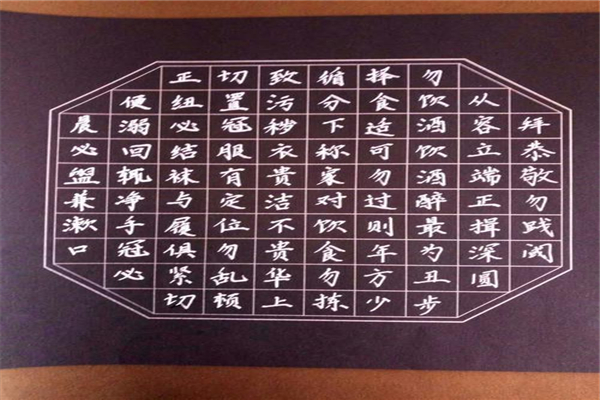 晨必盥兼漱口
便溺回辄净手冠必
正纽必结袜与履俱紧切
切置冠服有定位勿乱顿
致污秽衣贵洁不贵华上
循分下称家对饮食勿拣
择食适可勿过则年方少
勿饮酒饮酒醉最为丑步
从容立端正揖深圆
拜恭敬勿践阈